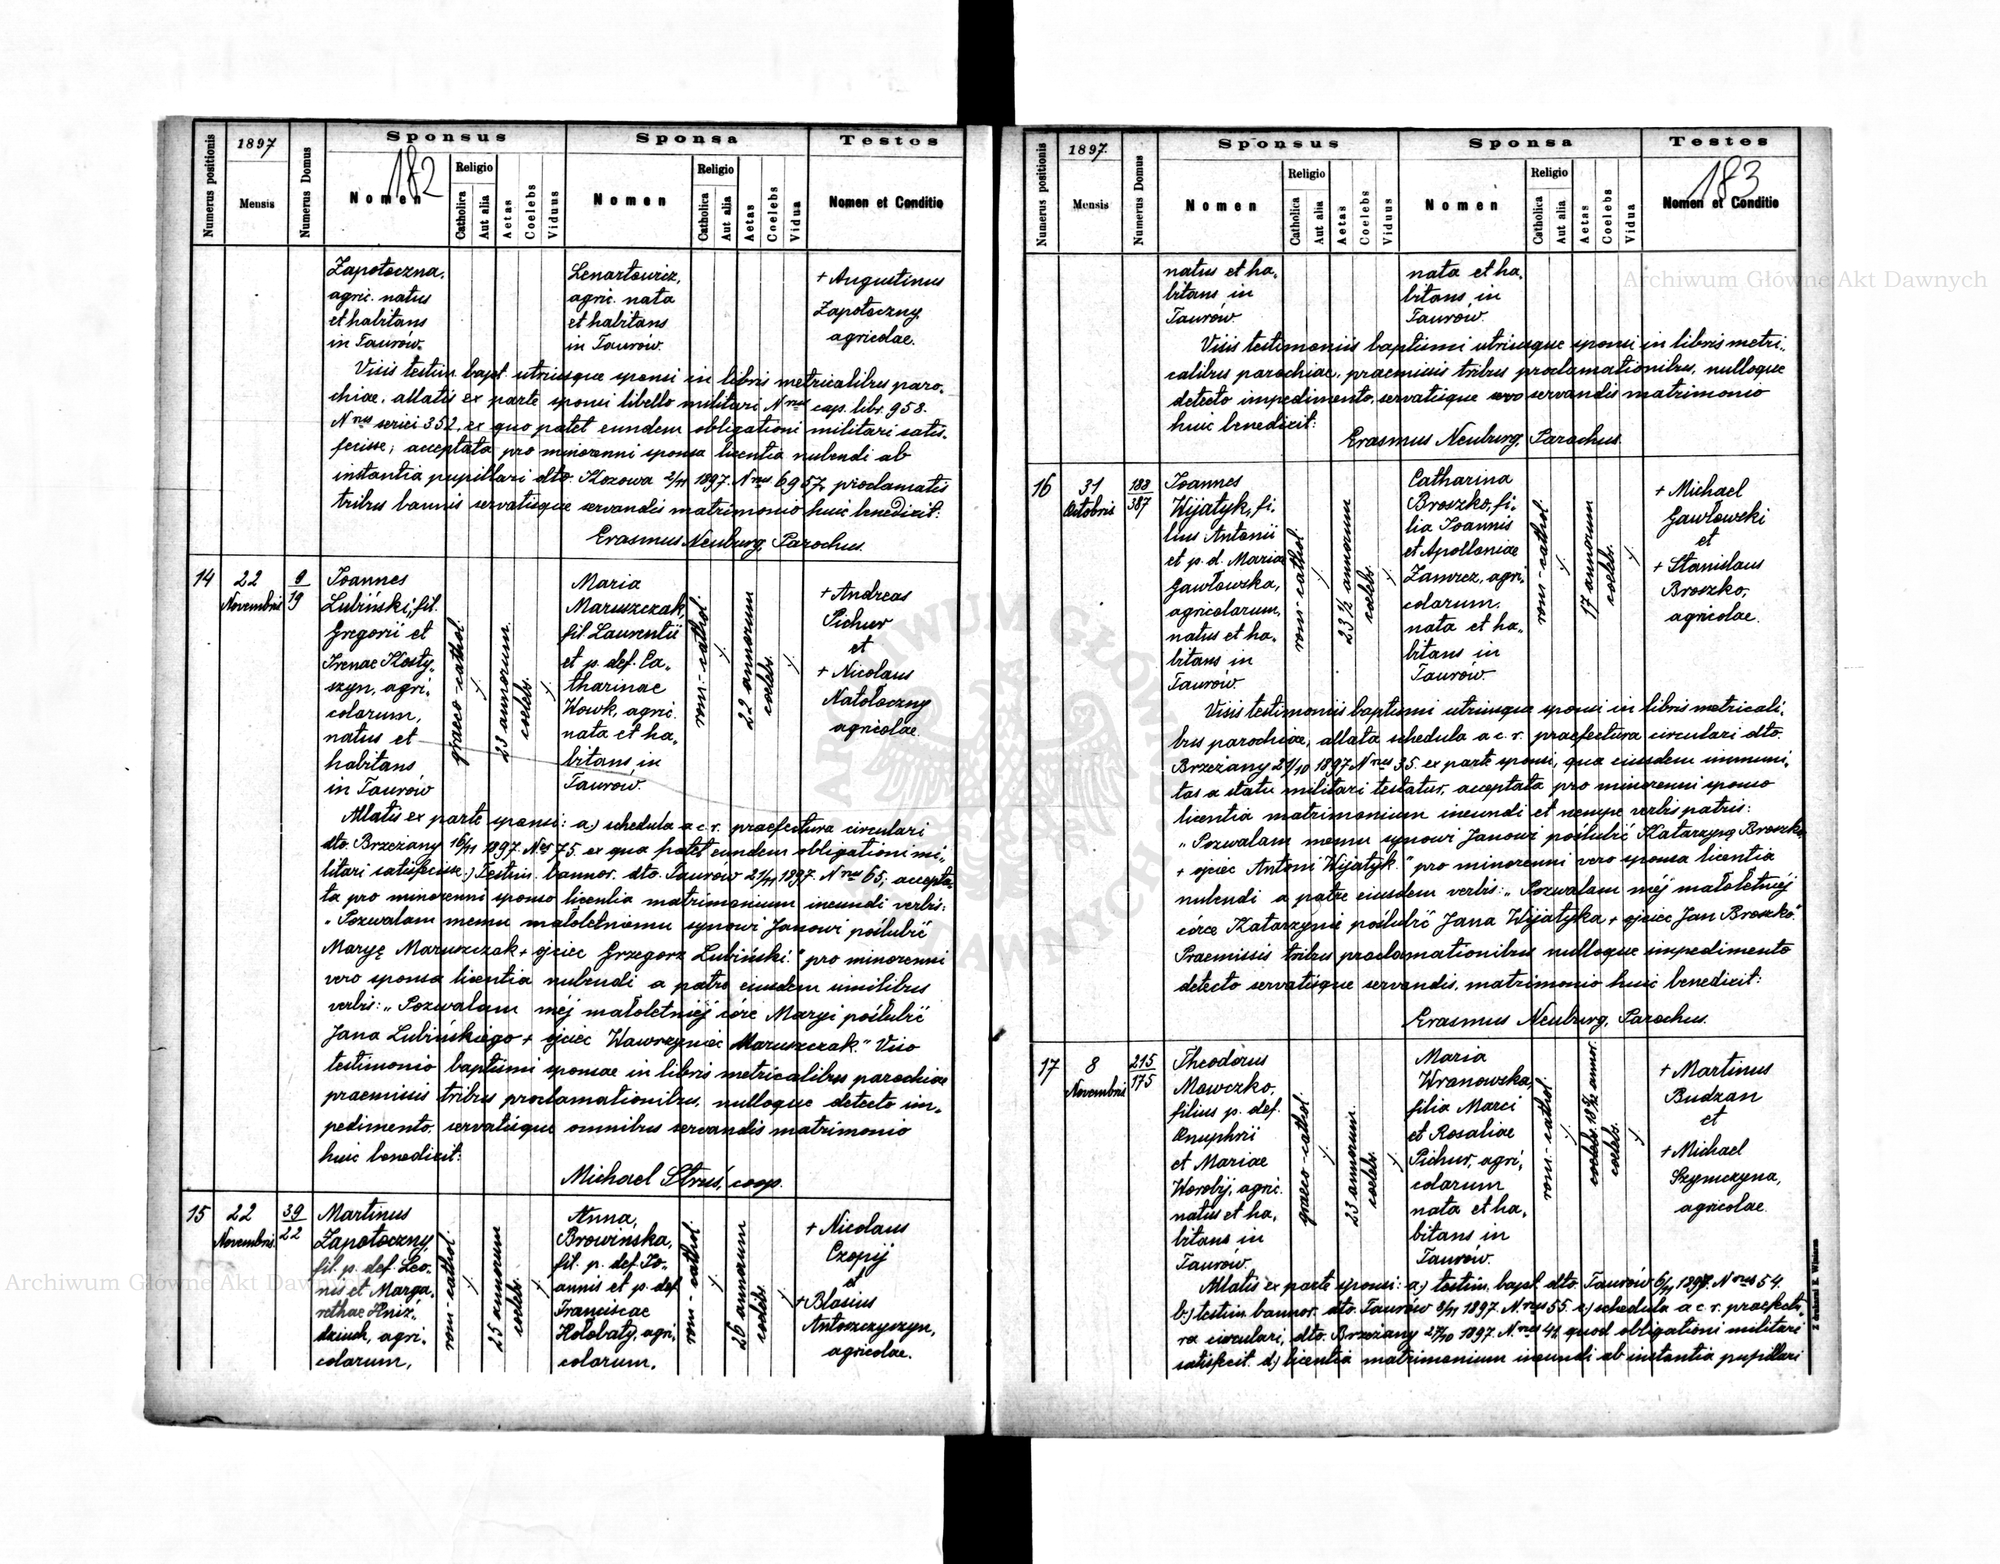 Numerus positionis
1897
Mensis
Numerus Domus
Sponsus
182
Nomen
Religio
Catholica
Aut alia
Aetas
Coelebs
Viduus
Sponsa
Nomen
Religio
Catholica
Aut alia
Aetas
Coelebs
Vidua
Testes
Nomen et Conditio
Zapotoczna,
agric. natus
et habitans
in Taurów.
Lenartowicz,
agric. nata
et habitans
in Taurów.
+ Augustinus
Zapotoczny
agricolae.
Visis testim. bapt. utriusque sponsi in libris metricalibus paro-
chiae, allatis ex parte sponsi libello militari Nrus cap. libr. 958.
Nrus seriei 352. ex quo patet eundem obligationi militari satis-
fecisse; acceptata pro minorenni sponsa licentia nubendi ab
instantia pupillari dto. Kozowa 2/11 1897. Nrus 6957, proclamatis
tribus bannis servatisque servandis matrimonio huic benedixit:
Erasmus Neuburg, Parochus.
14
22
Novembris
9
19
Joannes
Lubiński, fil.
Gregorii et
Irenae Kosty-
szyn, agri-
colarum,
natus et
habitans
in Taurów
graeco-cathol.
23 annorum.
coelebs.
Maria
Maruszczak,
fil. Laurentii
et p. def. Ca-
tharinae
Wowk, agri.
nata et ha-
bitans in
Taurów.
rom.-cathol.
22 annorum
coelebs.
+ Andreas
Pichur
et
+ Nicolaus
Natoloczny
agricolae.
Allatis ex parte sponsi: a) schedula a c. r. praefectura circulari
dto. Brzeżany 16/11 1897. Nrus 75. ex qua patet eundem obligationi mi-
litari satisfecisse.) Testim. bannor. dto. Taurów 21/11 1897. Nrus 65, accepta-
ta pro minorenni sponso licentia matrimonium ineundi verbis:
"Pozwalam memu małoletniemu synowi Janowi poślubić
Maryę Maruszczak + ojciec Grzegorz Lubiński." pro minorenni
vero sponsa licentia nubendi a patre eiusdem similibus
verbis: "Pozwalam méj małoletniéj córc Maryi poślubić
Jana Lubińskiego + ojciec Wawrzyniec Maruszczak." Viso
testimonio baptismi sponsae in libris metricalibus parochiae
praemissis tribus proclamationibus, nulloque detecto im-
pedimento, servatisque omnibus servandis matrimonio
huic benedixit:
Michael Struś, coop.
15
22
Novembris.
39
22
Martinus
Zapotoczny,
fil. p. def. Leo-
nis et Marga-
rethae Hniź-
dziuch, agri-
colarum,
rom-cathol.
25 annorum
coelebs.
Anna,
Browińska,
fil. p. def. Jo-
annis et p. def
Franciscae
Holobaty, agri-
colarum,
rom-cathol.
26 annorum
coelebs.
+ Nicolaus
Czopij
et
+ Blasius
Antoszczyszyn,
agricolae.
Numerus positionis
1897.
Mensis
Numerus Domus
Sponsus
Nomen
Religio
Catholica
Aut alia
Aetas
Coelebs
Viduus
Sponsa
Nomen
Religio
Catholica
Aut alia
Aetas
Coelebs
Vidua
Testes
183
Nomen et Conditio
natus et ha-
bitans in
Taurów.
nata et ha-
bitans in
Taurów.
Visis testimoniis baptismi utriusque sponsi in libris metri-
calibus parochiae, praemissis tribus proclamationibus, nulloque
detecto impedimento, servatisque servandis matrimonio
huic benedixit:
Erasmus Neuburg, Parochus.
16
31
Octobris
188
387
Joannes
Wijatyk, fi-
lius Antonii
et p. d. Mariae
Gawłowska,
agricolarum,
natus et ha-
bitans in
Taurów.
rom-cathol.
23 1/2 annorum
coelebs.
Catharina
Broszko, fi-
lia Joannis
et Apolloniae
Zawicz, agri-
colarum.
nata et ha-
bitans in
Taurów
rom-cathol.
17 annorum
coelebs.
+ Michael
Gawłowski
et
+ Stanislaus
Broszko,
agricolae.
Visis testimoniis baptismi utriusque sponsi in libris metricali-
bus parochiae, allata schedula a c. r. praefectura circulari dto.
Brzeżany 21/10 1897 Nrus 35. ex parte sponsi, qua eiusdem immuni-
tas a statu militari testatur, acceptata pro minorenni sponso
licentia matrimonium ineundi et nempe verbis patris:
"Pozwalam memu synowi Janowi poślubić Katarzynę Broszko
+ ojciec Antoni Wijatyk." pro minorenni vero sponsa licentia
nubendi a patre eiusdem verbis: "Pozwalam méj małoletniéj
córce Katarzynie poślubić Jana Wijatyka + ojciec Jan Broszko."
Praemissis tribus proclamationibus nulloque impedimento
detecto servatisque servandis, matrimonio huic benedixit:
Erasmus Neuburg, Parochus.
17
8
Novembris
215
175
Theodorus
Mowczko,
filius p. def.
Onuphrii
et Mariae
Worobij, agric.
natus et ha-
bitans in
Taurów.
graeco-cathol.
23 annorum.
coelebs.
Maria
Wranowska,
filia Marci
et Rosaliae
Pichur, agri-
colarum
nata et ha-
bitans in
Taurów.
rom-cathol.
coelebs.
+ Martinus
Budzan
et
+ Michael
Szymczyna,
agricolae.
Allatis ex parte sponsi: a) testim. bapt. dto. Taurów 6/11 1897. Nrus 54.
b.) testim. bannor. dto. Taurów 8/11 1897. Nrus 55. c.) schedula a c. r. praefectu-
ra circulari, dto. Brzeżany 27/10 1897. Nrus 41 quod obligationi militari
satisfecit. d.) licentia matrimonium ineundi ab instantia pupillari
Z drukarni E. Winiarza
Archiwum Główne Akt Dawnych
Archiwum Główne Akt Dawnych
ARCHIWUM GŁÓWNE AKT DAWNYCH